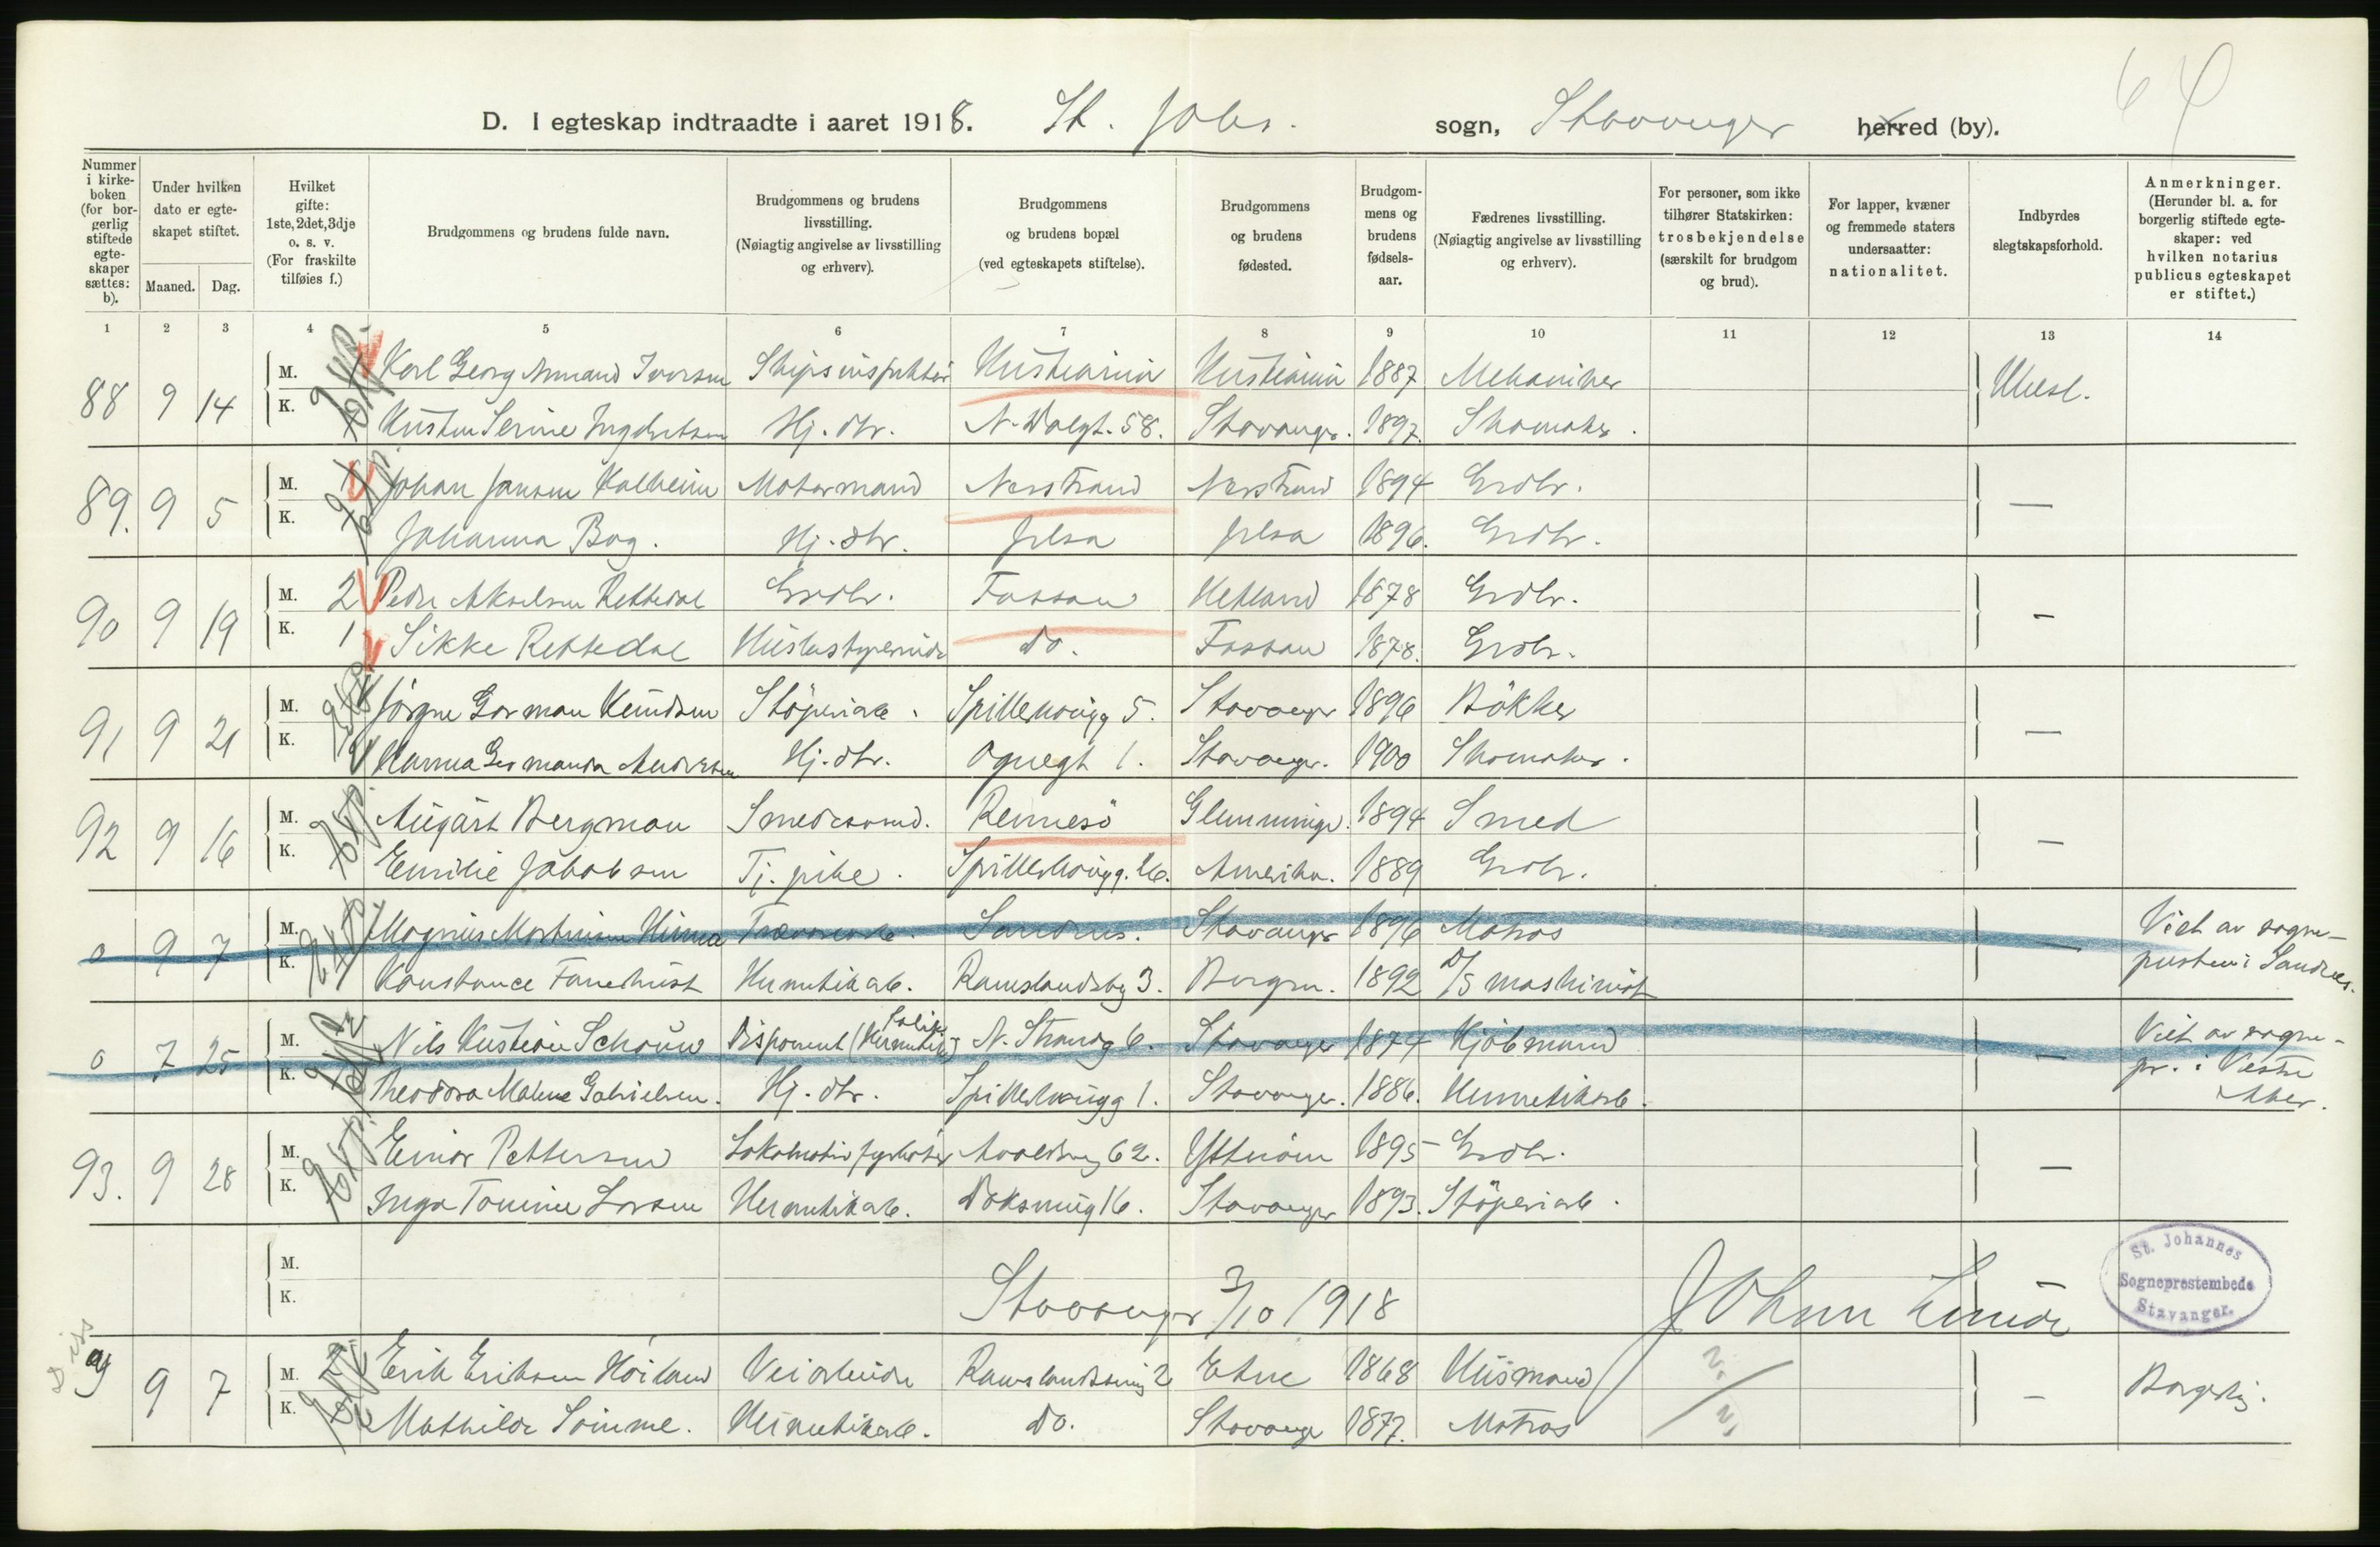 64
D. I egteskap indtraadte i aaret 1918. St. Johs. sogn, Stavanger herred (by).
Nummer i kirkeboken (for borgerlig stiftede egteskaper sættes: b).
Under hvilken dato er egteskapet stiftet.
Maaned. Dag.
Hvilket gifte: 1ste, 2det, 3dje o. s. v. (For fraskilte tilføies f.)
Brudgommens og brudens fulde navn.
Brudgommens og brudens livsstilling. (Nøiagtig angivelse av livsstilling og erhverv).
Brudgommens og brudens bopæl (ved egteskapets stiftelse).
Brudgommens og brudens fødested.
Brudgommens og brudens fødselsaar.
Fædrenes livsstilling. (Nøiagtig angivelse av livsstilling og erhverv).
For personer, som ikke tilhører Statskirken: trosbekjendelse (særskilt for brudgom og brud).
For lapper, kvæner og fremmede staters undersaatter: nationalitet.
Indbyrdes slegtskapsforhold.
Anmerkninger. (Herunder bl. a. for borgerlig stiftede egteskaper: ved hvilken notarius publicus egteskapet er stiftet.)
1 2 3 4 5 6 7 8 9 10 11 12 13 14
88 9 14 M. Karl Georg Armand Iversen Skipsinspektör Kristiania Kristiania 1887 Mekaniker Ubesl.
K. Kristen Serine Ingebretsen Hj. dtr. N. Dalgt. 58. Stavanger. 1897. Skomaker.
89. 9 5 M. Johan Jansen Kalheim Motormand Nerstrand Nerstrand 1894 Grdbr. —
K. Johanna Bag. Hj. dtr. Jelsa Jelsa 1896. Grdbr.
90 9 19 M. 2 Peder Akselsen Rettedal Grdbr. Fossan Hetland 1878 Grdbr. —
K. 1 Sikke Rettedal Husbestyrerinde do. Fossan 1878. Grdbr.
91 9 21 M. Jörgen Gorman Knudsen Stöperiarb. Spilderhougg 5. Stavanger 1896 Bökker —
K. Hanna Germanda Andersen Hj. dtr. Ognegt 1. Stavanger. 1900 Skomaker.
92 9 16 M. August Bergman Smedesvend. Rennesö Glemminge. 1894 Smed —
K. Emilie Jakobsen Tj. pike. Spilderhougg. 26. Amerika. 1889 Grdbr.
0 9 7 M. Magnus Martinsen Hinna Trævarearb. Sandnes. Stavanger 1896 Matros — Viet av sogne-
K. Konstance Fanehust Hermetikarb. Ramslandsbg 3. Bergen. 1892 D/S maskinist presten i Sandnes.
0 7 25 M. Nils Kristian Schouw Disponent (Hermetikfabrik) N. Strandg 6. Stavanger 1874 Kjöbmand — Viet av sogne-
K. Theodora Malene Gabrielsen. Hj. dtr. Spilderhougg 1. Stavanger. 1886. Hermetikarb. pr. i Vestre Aker.
93. 9 28 M. Einar Pettersen Lokomotivfyrböter Avaldsng 62. Ytteröen 1895 Grdbr. —
K. Inga Tomine Larsen Hermetikarb. Voksmug 16. Stavanger 1893. Stöperiarb.
M. Stavanger 3/10 1918 John —
K.
St. Johannes
Sogneprestembede
Stavanger.
9 7 M. 2 Erik Eriksen Höiland Veiarbeider Ramslandsbg 2 Etne 1868 Husmand — Borgerlig.
K. Mathilde Sömme. Hermetikarb. do. Stavanger 1877. Matros